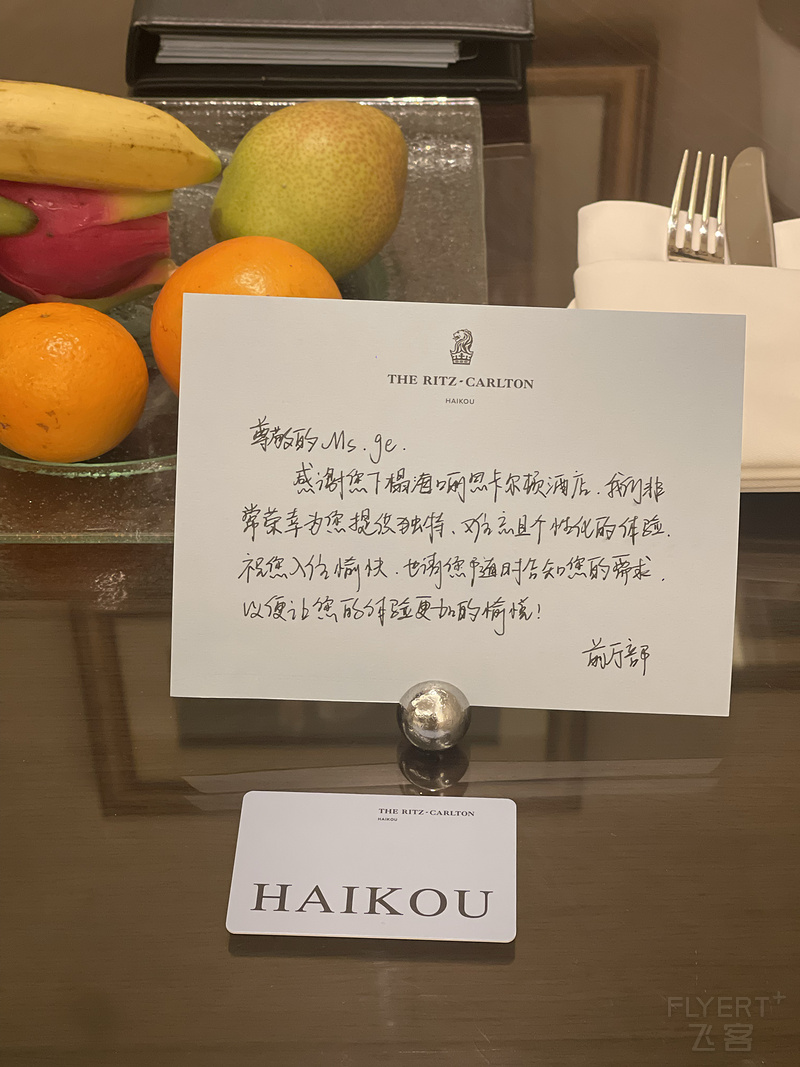 THE RITZ-CARLTON
HAIKOU
尊敬的Ms. ge.
感谢您下榻海口丽思卡尔顿酒店. 我们非
常荣幸为您提供独特、难忘且个性化的体验.
祝您入住愉快. 也请您随时告知您的要求,
以便让您的体验更加的愉悦!
前厅部
THE RITZ-CARLTON
HAIKOU
HAIKOU
FLYERT+
飞客